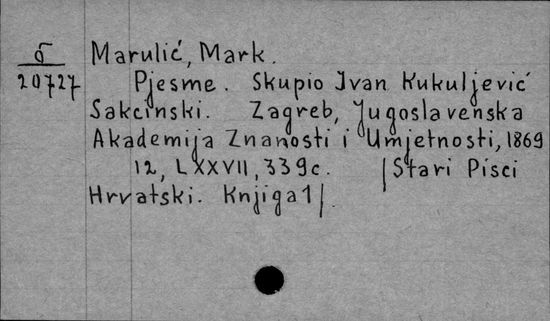 б
20727
Marulić, Mark.
Pjesme. Skupio Ivan Kukuljević
Sakcinski. Zagreb, Jugoslavenska
Akademija Znanosti i Umjetnosti, 1869
12, LXXVII, 339c. |Stari Pisci
Hrvatski. Knjiga 1|.